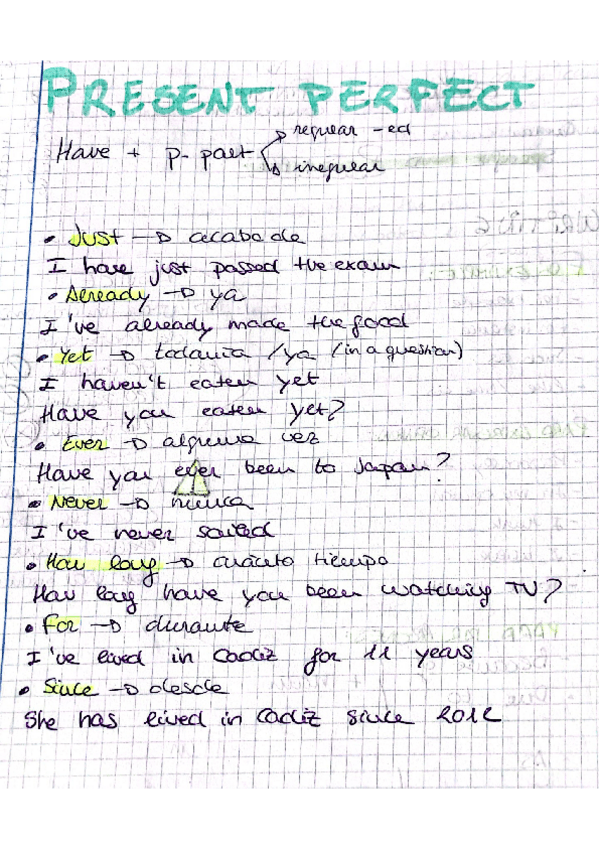 PRESENT PERFECT
Have + p. part → regular -ed
→ irregular
• Just → acaba de
I have just passed the exam
• Already → ya
I've already made the good
• Yet → todavía / ya (in a question)
I haven't eaten yet
Have you eaten yet?
• Ever → alguna vez
Have you ever been to Japan?
• Never → nunca
I've never sailed
• How long → cuánto tiempo
How long have you been watching TV?
• For → durante
I've lived in Cadiz for 11 years
• Since → desde
She has lived in Cadiz since